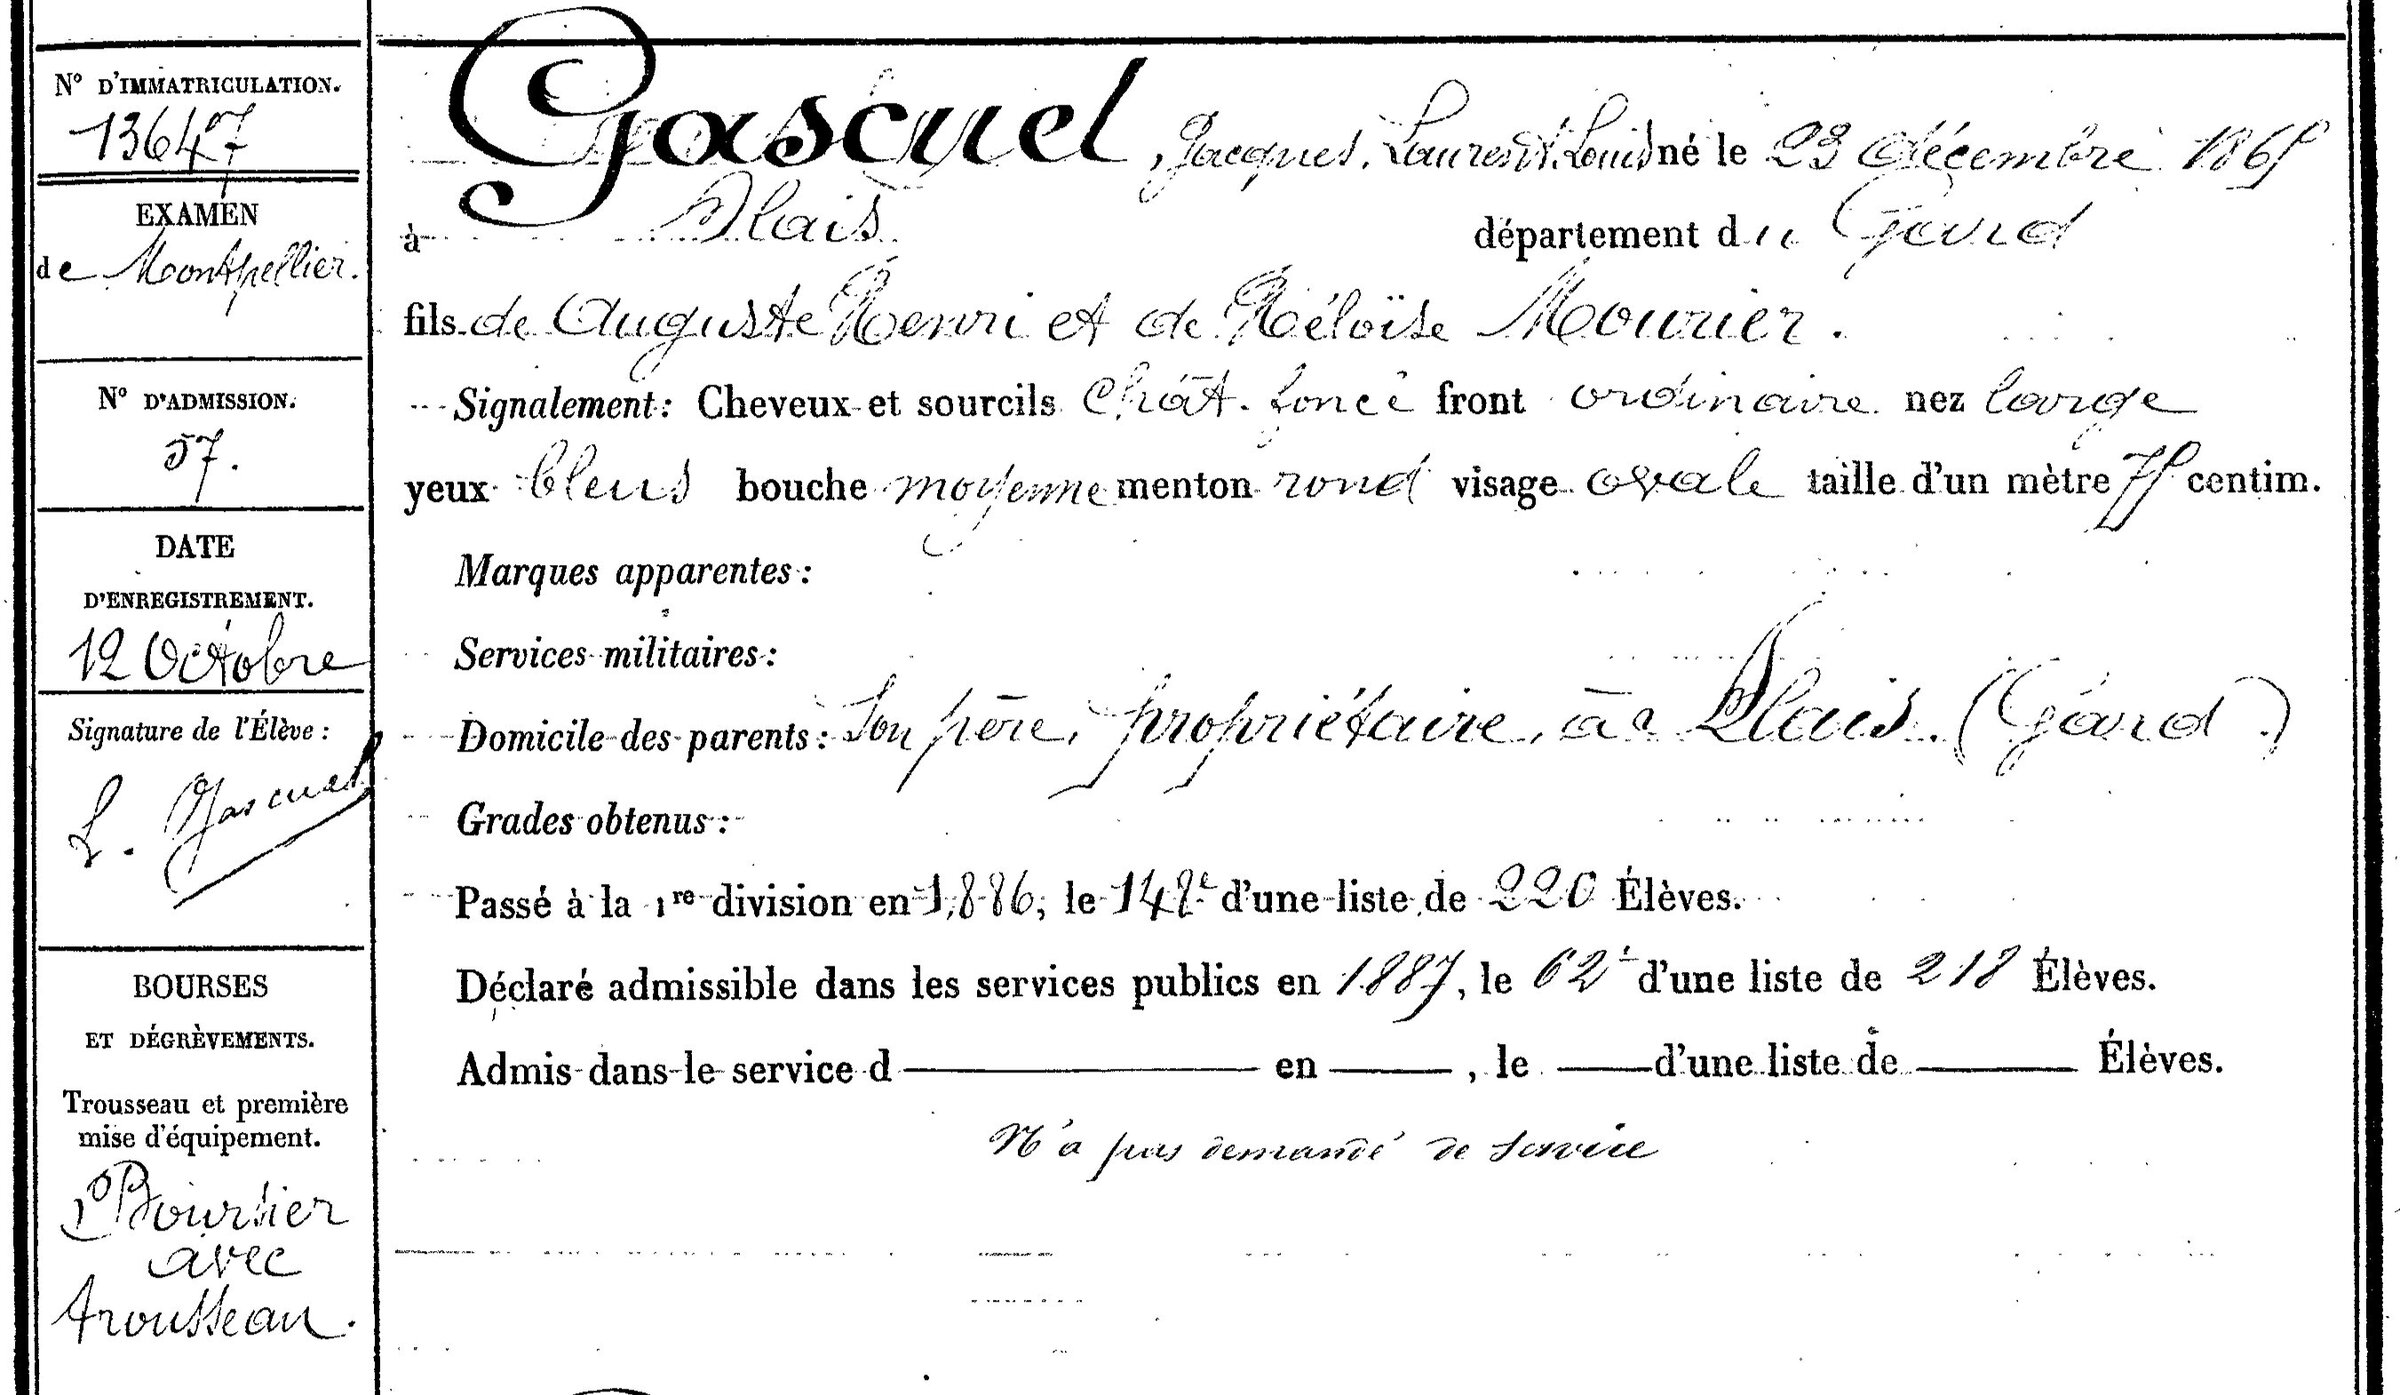 N° D'IMMATRICULATION.
13647
EXAMEN
de Montpellier.
N° D'ADMISSION.
57.
DATE
D'ENREGISTREMENT.
12 Octobre
Signature de l'Élève :
L. Gascuel
BOURSES
ET DÉGRÈVEMENTS.
Trousseau et première
mise d'équipement.
Boursier
avec
trousseau.
Gascuel, Jacques, Laurent, Louis né le 23 décembre 1865
à Alais département du Gard
fils de Auguste Henri et de Héloïse Mourier.
Signalement : Cheveux et sourcils Chât. foncé front ordinaire nez large
yeux bleus bouche moyenne menton rond visage ovale taille d'un mètre 75 centim.
Marques apparentes :
Services militaires :
Domicile des parents : Son père, propriétaire, à Alais. (Gard.)
Grades obtenus :
Passé à la 1re division en 1886, le 142e d'une liste de 220 Élèves.
Déclaré admissible dans les services publics en 1887, le 62e d'une liste de 218 Élèves.
Admis dans le service d en , le d'une liste de Élèves.
N'a pas demandé de service